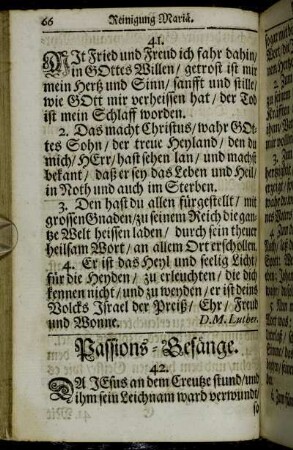 66 Reinigung Mariä.
41.
MIt Fried und Freud ich fahr dahin/
in GOttes Willen/ getrost ist mir
mein Hertz und Sinn/ sanfft und stille/
wie GOtt mir verheissen hat/ der Tod
ist mein Schlaff worden.
2. Das macht Christus/ wahr GOt-
tes Sohn/ der treue Heyland/ den du
mich/ HErr/ hast sehen lan/ und machst
bekant/ daß er sey das Leben und Heil/
in Noth und auch im Sterben.
3. Den hast du allen fürgestellt/ mit
grossen Gnaden/ zu seinem Reich die gan-
tze Welt heissen laden/ durch sein theuer
heilsam Wort/ an allem Ort erschollen.
4. Er ist das Heyl und seelig Licht/
für die Heyden/ zu erleuchten/ die dich
kennen nicht/ und zu weyden/ er ist deins
Volcks Israel der Preiß/ Ehr/ Freud
und Wonne. D.M. Luther.
Passions-Gesänge.
42.
DA JEsus an dem Creutze stund/ und
ihm sein Leichnam ward verwundt/
so